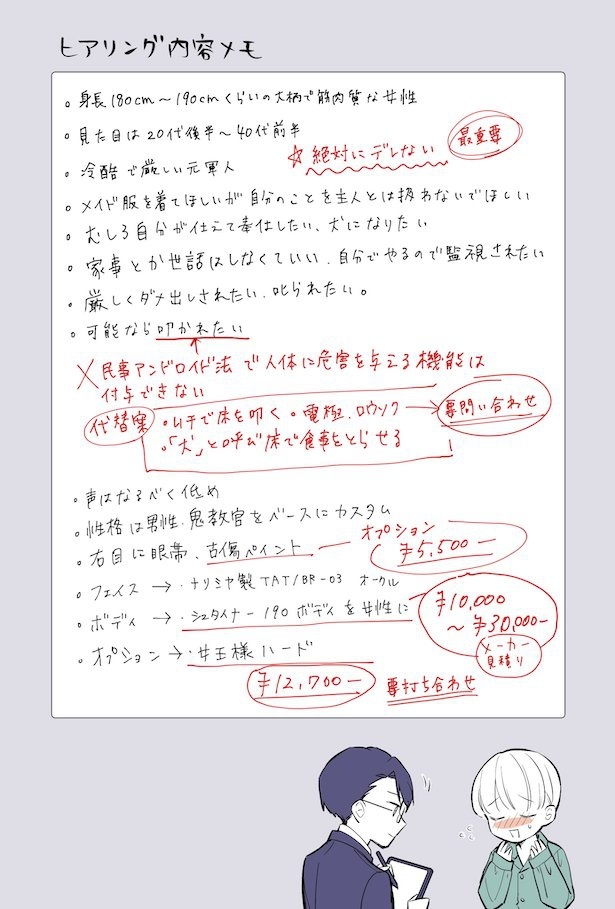 ヒアリング内容メモ
。身長180cm～190cmくらいの大柄で筋肉質な女性
。見た目は20代後半～40代前半
☆絶対にデレない
最重要
。冷酷で厳しい元軍人
。メイド服を着てほしいが自分のことを主人とは扱わないでほしい
。むしろ自分が仕えて奉仕したい、犬になりたい
。家事とか世話はしなくていい、自分でやるので監視されたい
。厳しくダメ出しされたい、叱られたい。
。可能なら叩かれたい
×民事アンドロイド法で人体に危害を与える機能は
付与できない
代替案
。ムチで床を叩く。電極、ロウソク→
要問い合わせ
。「犬」と呼び床で食事をとらせる
。声はなるべく低め
。性格は男性、鬼教官をベースにカスタム
。右目に眼帯、古傷ペイント
オプション
¥5,500ー
。フェイス→・ナリミヤ製TAT/BR-03 オークル
。ボディ→・シュタイナー190ボディを女性に
¥10,000
～¥30,000ー
メーカー
見積り
。オプション→・女王様ハード
¥12,700ー
要打ち合わせ